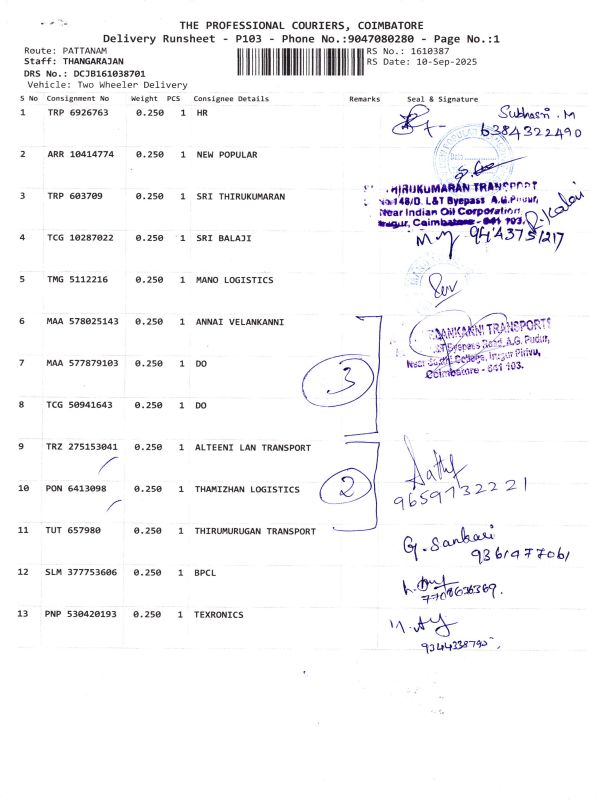 THE PROFESSIONAL COURIERS, COIMBATORE
Delivery Runsheet - P103 - Phone No.:9047080280 - Page No.:1
Route: PATTANAM
Staff: THANGARAJAN
DRS No.: DCJB161038701
Vehicle: Two Wheeler Delivery
RS No.: 1610387
RS Date: 10-Sep-2025
S No Consignment No Weight PCS Consignee Details Remarks Seal & Signature
1 TRP 6926763 0.250 1 HR Subhasri.M
6384322490
2 ARR 10414774 0.250 1 NEW POPULAR
3 TRP 603709 0.250 1 SRI THIRUKUMARAN
THIRUKUMARAN TRANSPORT
No.148/D. L&T Byepass A.G.Pudur,
Near Indian Oil Corporation,
Irugur, Coimbatore - 641 103.
4 TCG 10287022 0.250 1 SRI BALAJI
5 TMG 5112216 0.250 1 MANO LOGISTICS
6 MAA 578025143 0.250 1 ANNAI VELANKANNI
TRANSPORTS
L&T Byepass Road, A.G. Pudur,
Near Sasthi College, Irugur Pirivu,
Coimbatore - 641 103.
7 MAA 577879103 0.250 1 DO 3
8 TCG 50941643 0.250 1 DO
9 TRZ 275153041 0.250 1 ALTEENI LAN TRANSPORT
10 PON 6413098 0.250 1 THAMIZHAN LOGISTICS 2 9659732221
11 TUT 657980 0.250 1 THIRUMURUGAN TRANSPORT G. Sankari
9361977061
12 SLM 377753606 0.250 1 BPCL
7708636369.
13 PNP 530420193 0.250 1 TEXRONICS
9344338790